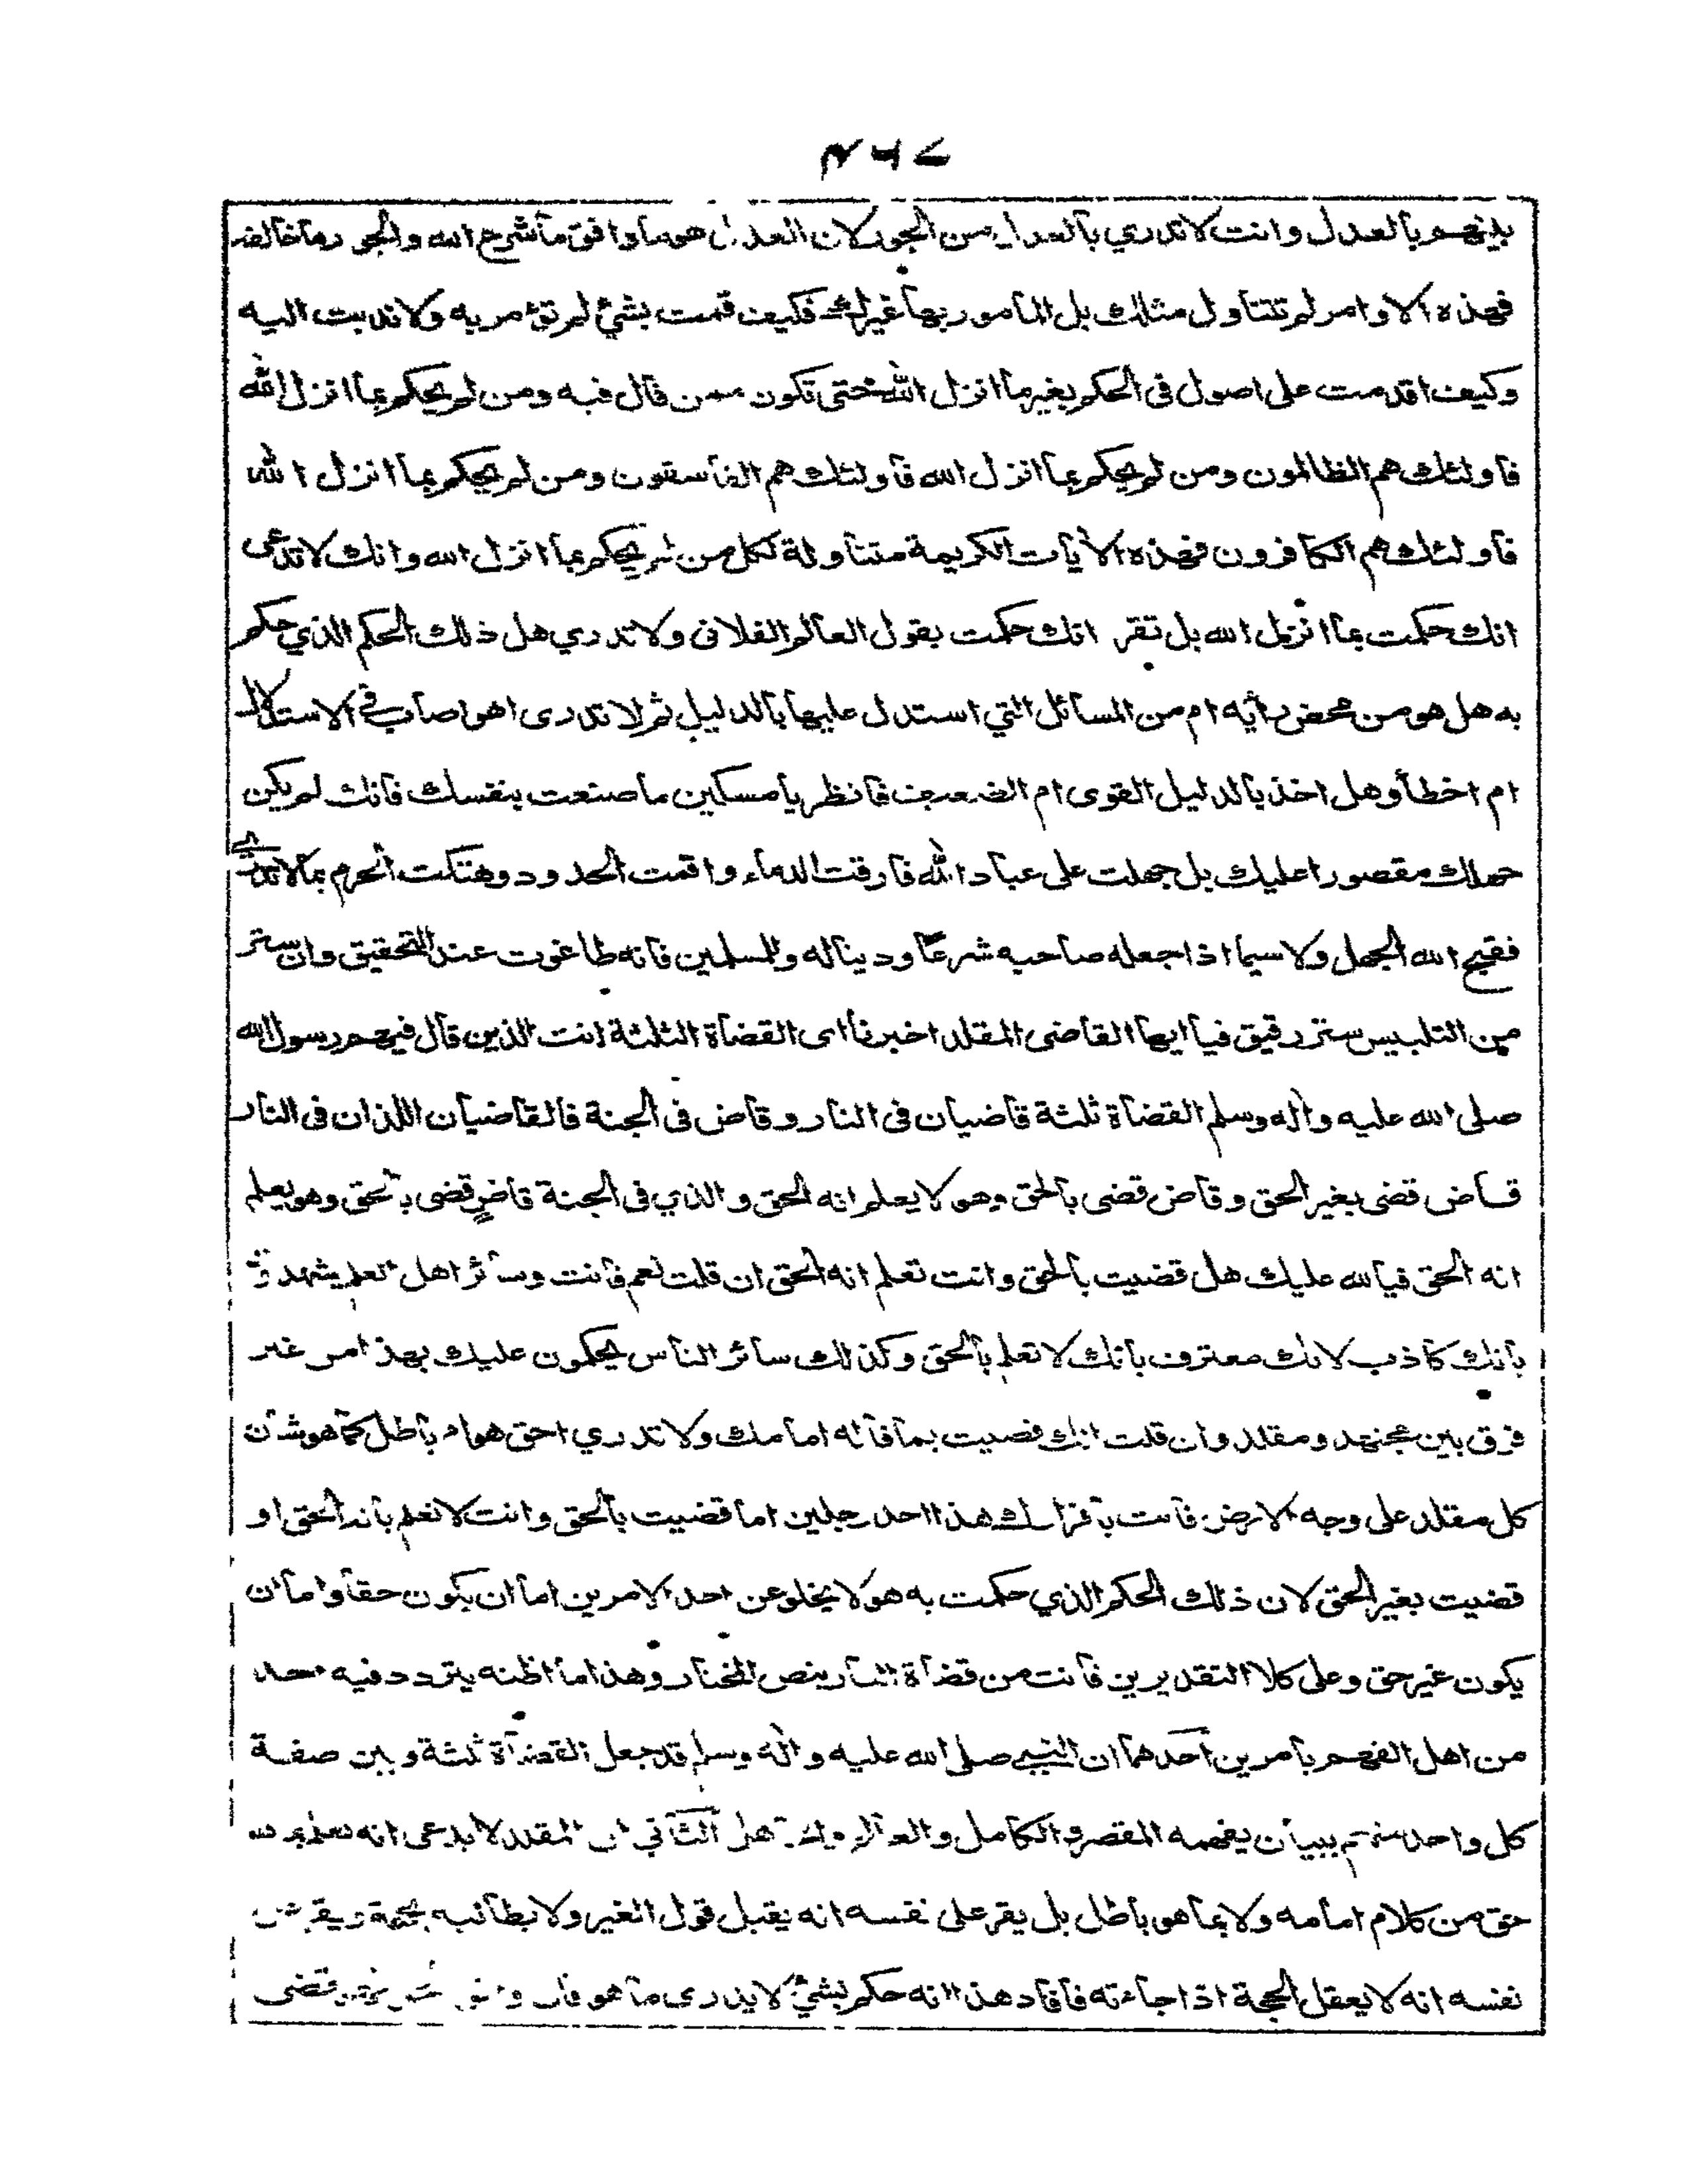 ۴۶۷
بينهم بالعدل وانت لاتدري بالعدل من الجور لان العدل هو ما وافق ما شرع الله والجور ما خالفه
فهذه الاوامر لم تتناول مثلك بل المأمور بها غيرك فكيف قمت بشئ لم تؤمر به ولا ندبت اليه
وكيف اقدمت على اصول فى الحكم بغير ما انزل الله حتى تكون ممن قال فيه ومن لم يحكم بما انزل الله
فاولئك هم الظالمون ومن لم يحكم بما انزل الله فاولئك هم الفاسقون ومن لم يحكم بما انزل الله
فاولئك هم الكافرون فهذه الأيات الكريمة متناولة لكل من لم يحكم بما انزل الله وانك لا تدعى
انك حكمت بما انزل الله بل تقر انك حكمت بقول العالم الفلانى ولا تدري هل ذلك الحكم الذي حكم
به هل هو من محض رأيه ام من المسائل التي استدل عليها بالدليل ثم لا تدرى اهو اصاب فى الاستدلال
ام اخطأ وهل اخذ بالدليل القوى ام الضعيف فانظر يا مسكين ما صنعت بنفسك فانك لم يكن
جهلك مقصورا عليك بل جهلت على عباد الله فارقت الدماء واقمت الحدود وهتكت الحرم بما لا تدرى
فقبح الله الجهل ولا سيما اذا جعله صاحبه شرعًا ودينا له وللمسلمين فانه طاغوت عند التحقيق وان ستر
من التلبيس ستر رقيق فيا ايها القاضى المقلد اخبرنا اى القضاة الثلثة انت الذين قال فيهم رسول الله
صلى الله عليه واله وسلم القضاة ثلثة قاضيان فى النار وقاض فى الجنة فالقاضيان اللذان فى النار
قاض قضى بغير الحق وقاض قضى بالحق وهو لا يعلم انه الحق والذي فى الجنة قاضٍ قضى بالحق وهو يعلم
انه الحق فيالله عليك هل قضيت بالحق وانت تعلم انه الحق ان قلت نعم فانت وسائر اهل العلم يشهدون
بانك كاذب لانك معترف بانك لا تعلم بالحق وكذلك سائر الناس يحكمون عليك بهذا من غير
فرق بين مجتهد ومقلد وان قلت انك قضيت بما قاله امامك ولا تدري احق هو ام باطل كما هو شأن
كل مقلد على وجه الارض فانت باقرارك هذا احد رجلين اما قضيت بالحق وانت لا تعلم بانه الحق او
قضيت بغير الحق لان ذلك الحكم الذي حكمت به هو لا يخلو عن احد الامرين اما ان يكون حقا واما ان
يكون غير حق وعلى كلا التقديرين فانت من قضاة النار بنص المختار وهذا ما اظنه يتردد فيه احد
من اهل الفهم بامرين احدهما ان النبي صلى الله عليه واله وسلم قد جعل القضاة ثلثة وبين صفة
كل واحد منهم ببيان يفهمه المقصر والكامل والعالم والجاهل الثاني ان المقلد لا يدعى انه يعلم بما هو
حق من كلام امامه ولا بما هو باطل بل يقر على نفسه انه يقبل قول الغير ولا يطالبه بحجة ويقر على
نفسه انه لا يعقل الحجة اذا جاءته فافاد هذا انه حكم بشئ لا يدرى ما هو فان وافق الحق فهو قضى